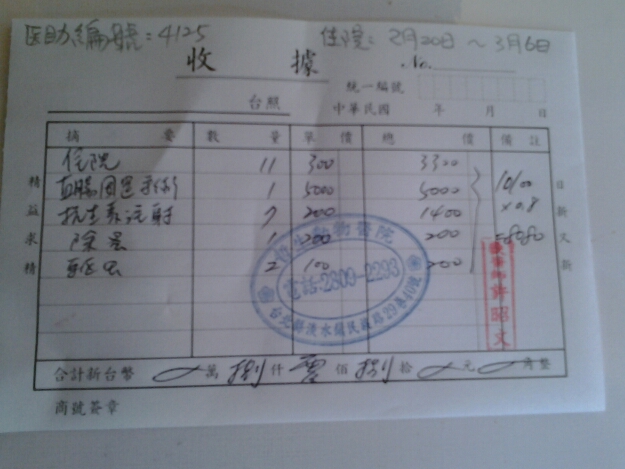 醫助編號：4125 住院：2月20日～3月6日
收據 No.
統一編號
台照 中華民國 年 月 日
摘要 數量 單價 總價 備註
住院 11 300 3300
直腸固定手術 1 5000 5000 10100
抗生素注射 7 200 1400 ×0.8
除蚤 1 200 200 =8080
驅虫 2 100 200
精益求精
日新又新
動物醫院
電話
台北縣淡水鎮民族路29巷40號
許昭文
合計新台幣 萬捌仟零佰捌拾 元 角整
商號簽章